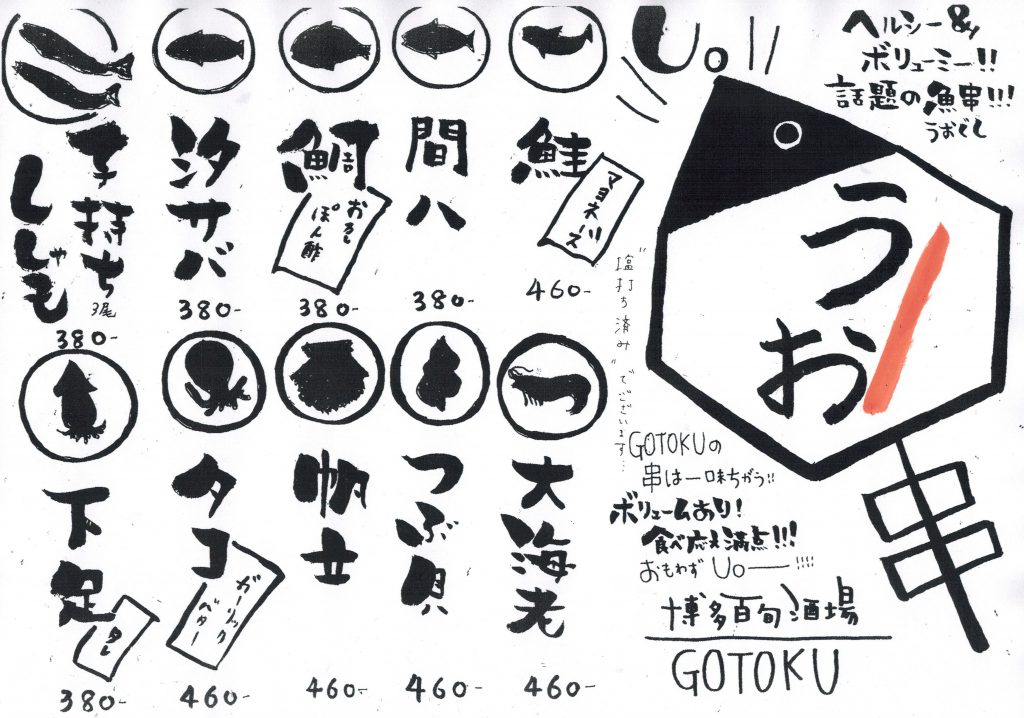 ヘルシー&
ボリューミー!!
話題の魚串!!!
うおぐし
Uo!!
うお
串
鮭
マヨネーズ
460-
間八
380-
鯛
おろし
ぽん酢
380-
汐サバ
380-
子持ち
ししゃも
3尾
380-
大海老
460-
つぶ貝
460-
帆立
460-
タコ
ガーリック
バター
460-
下足
タレ
380-
"塩打ち済み"でございます…
GOTOKUの
串は一味ちがう!!
ボリュームあり!
食べ応え満点!!!
おもわずUo—!!!!
博多百旬酒場
GOTOKU